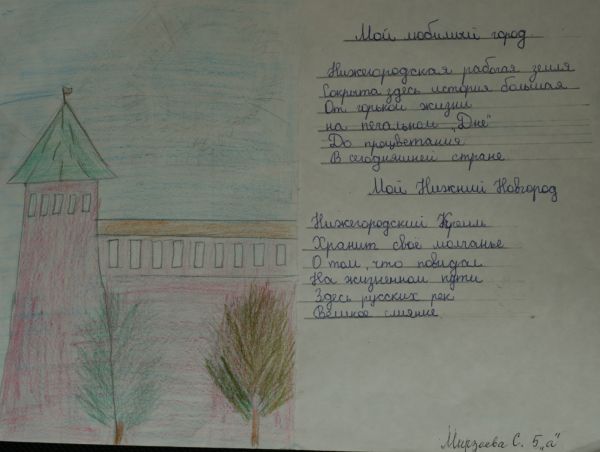 Мой любимый город
Нижегородская рабочая земля
Сокрыта здесь история большая
От горькой жизни
на печальном „Дне"
До процветания
В сегодняшней стране
Мой Нижний Новгород
Нижегородский Кремль
Хранит своё молчанье
О том, что повидал
На жизненном пути
Здесь русских рек
Великое слияние
Мирзоева С. 5„а"